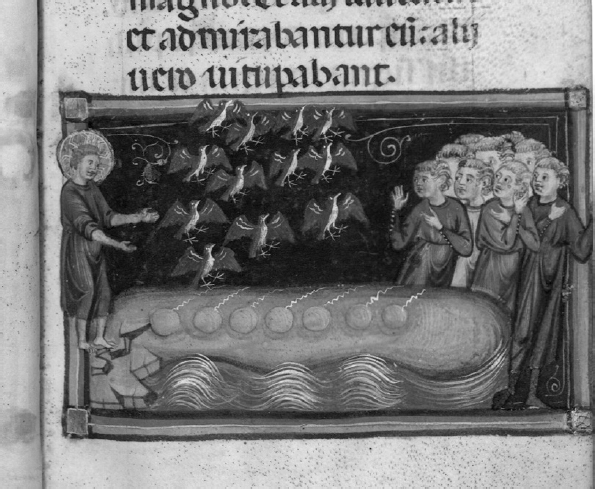 et admirabantur eū: alij
uero uitupabant.